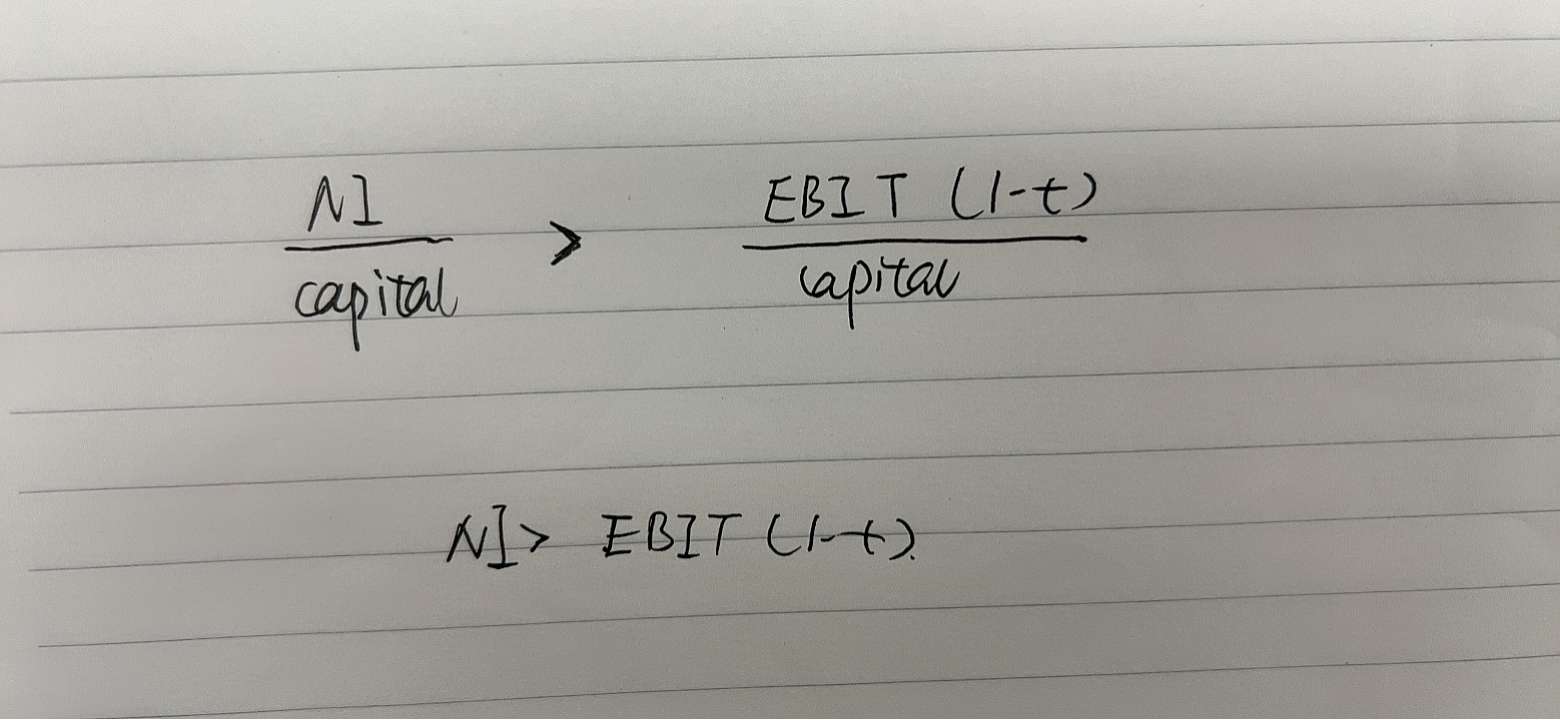 NI / capital > EBIT (1-t) / capital
NI > EBIT (1-t).